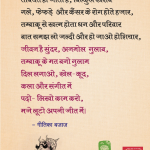 गले, फेफड़े और कैंसर के रोग होते हजार,
तम्बाकू से खत्म होता धन और परिवार
बात समझ लो जल्दी और हो जाओ होशियार,
जीवन है सुंदर, अनमोल गुलाब,
तम्बाकू के मत बनो गुलाम
दिल लगाओ, खेल-कूद,
कला और संगीत में
पढ़ो- लिखो काम करो,
मजे लूटो अपनी जीत में।
- गीतिका बजाज